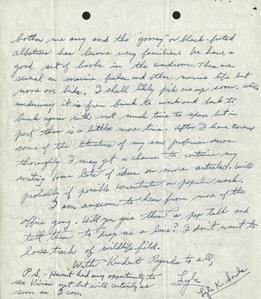 bother me any and the "gooney" or black-footed
albatross has become very familiar. We have a
good set of books in the wardroom. There are
several on marine fishes and other marine life but
none on birds. I shall likely pick me up some. While
underway it is from bunk to work and back to
bunk again with not much time to spare but in
port there is a little more time. After I have covered
some of the literature of my new profession more
thoroughly I may get a chance to continue my
writing. Have lots of ideas on more articles, with
probably if possible concentrate on popular work.
I am anxious to hear from more of the
office gang. Will you give them a pep talk and
tell them to drop me a line? I don't want to
lose track of wildlife field.
With Kindest Regards to all,
Lyle
P.S. - Haven't had any opportunity to
see Vivian yet but will certainly as
soon as I can.